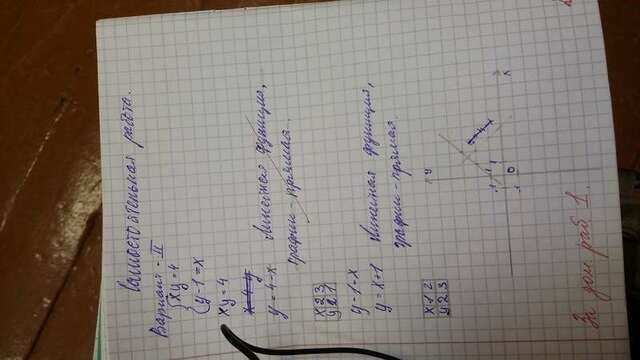 Самостоятельная работа.
Вариант - II
{ xy = 4
{ y - 1 = x
xy = 4
y = 4 - x линейная функция,
график - прямая.
x 2 3
y 2 1
y - 1 = x линейная функция,
y = x + 1 график - прямая
x 1 2
y 2 3
y
1
0
x
За дом раб 1.